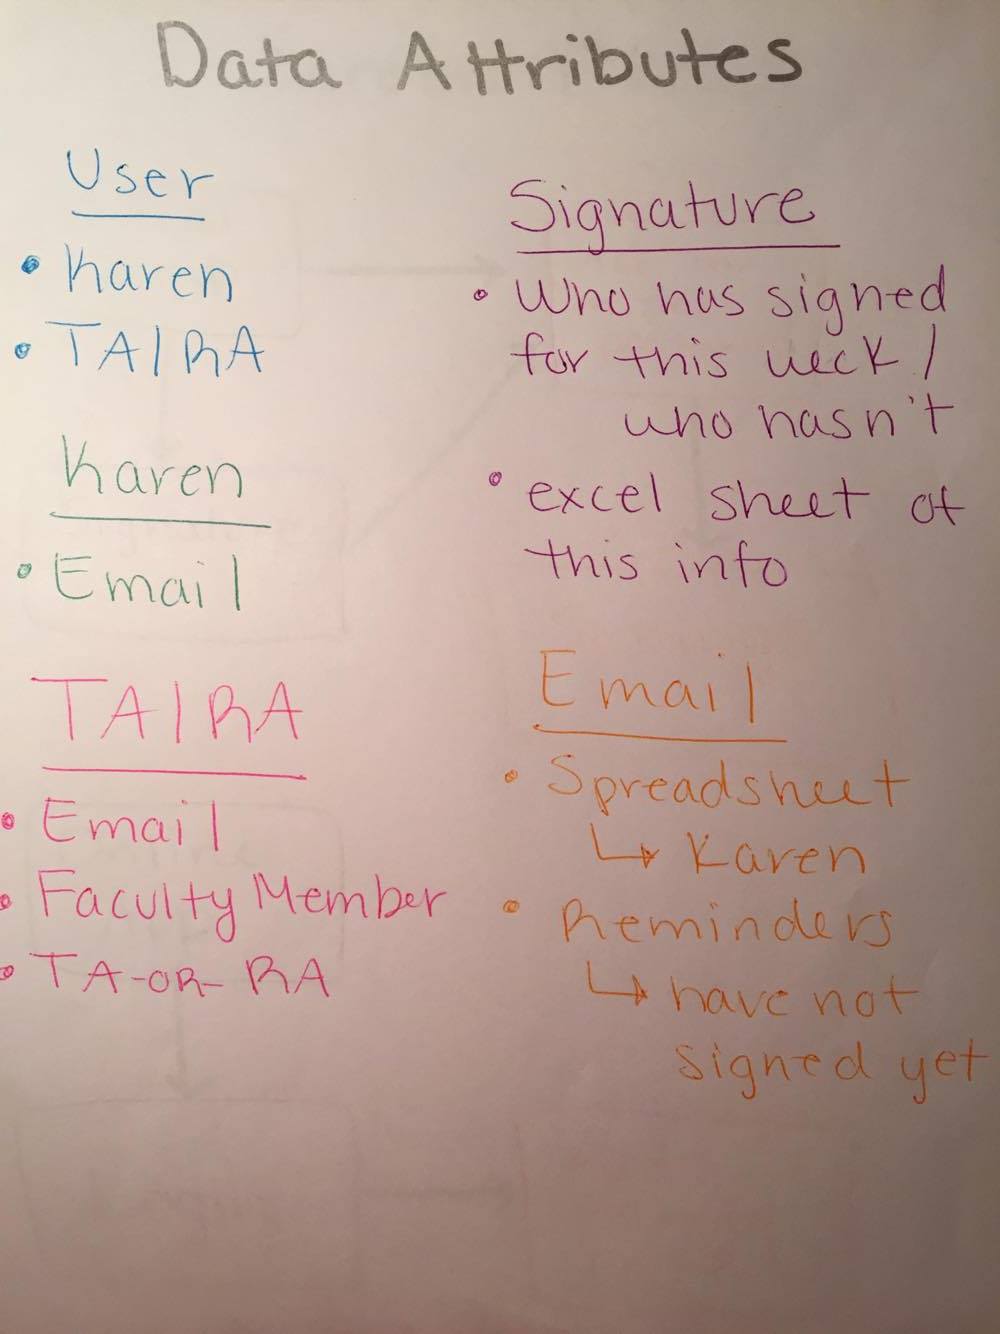 Data Attributes
User
• Karen
• TA/RA
Karen
• Email
TA/RA
• Email
• Faculty Member
• TA-OR-RA
Signature
• Who has signed
for this week /
who hasn't
• excel sheet of
this info
Email
• Spreadsheet
↳ Karen
• Reminders
↳ have not
signed yet